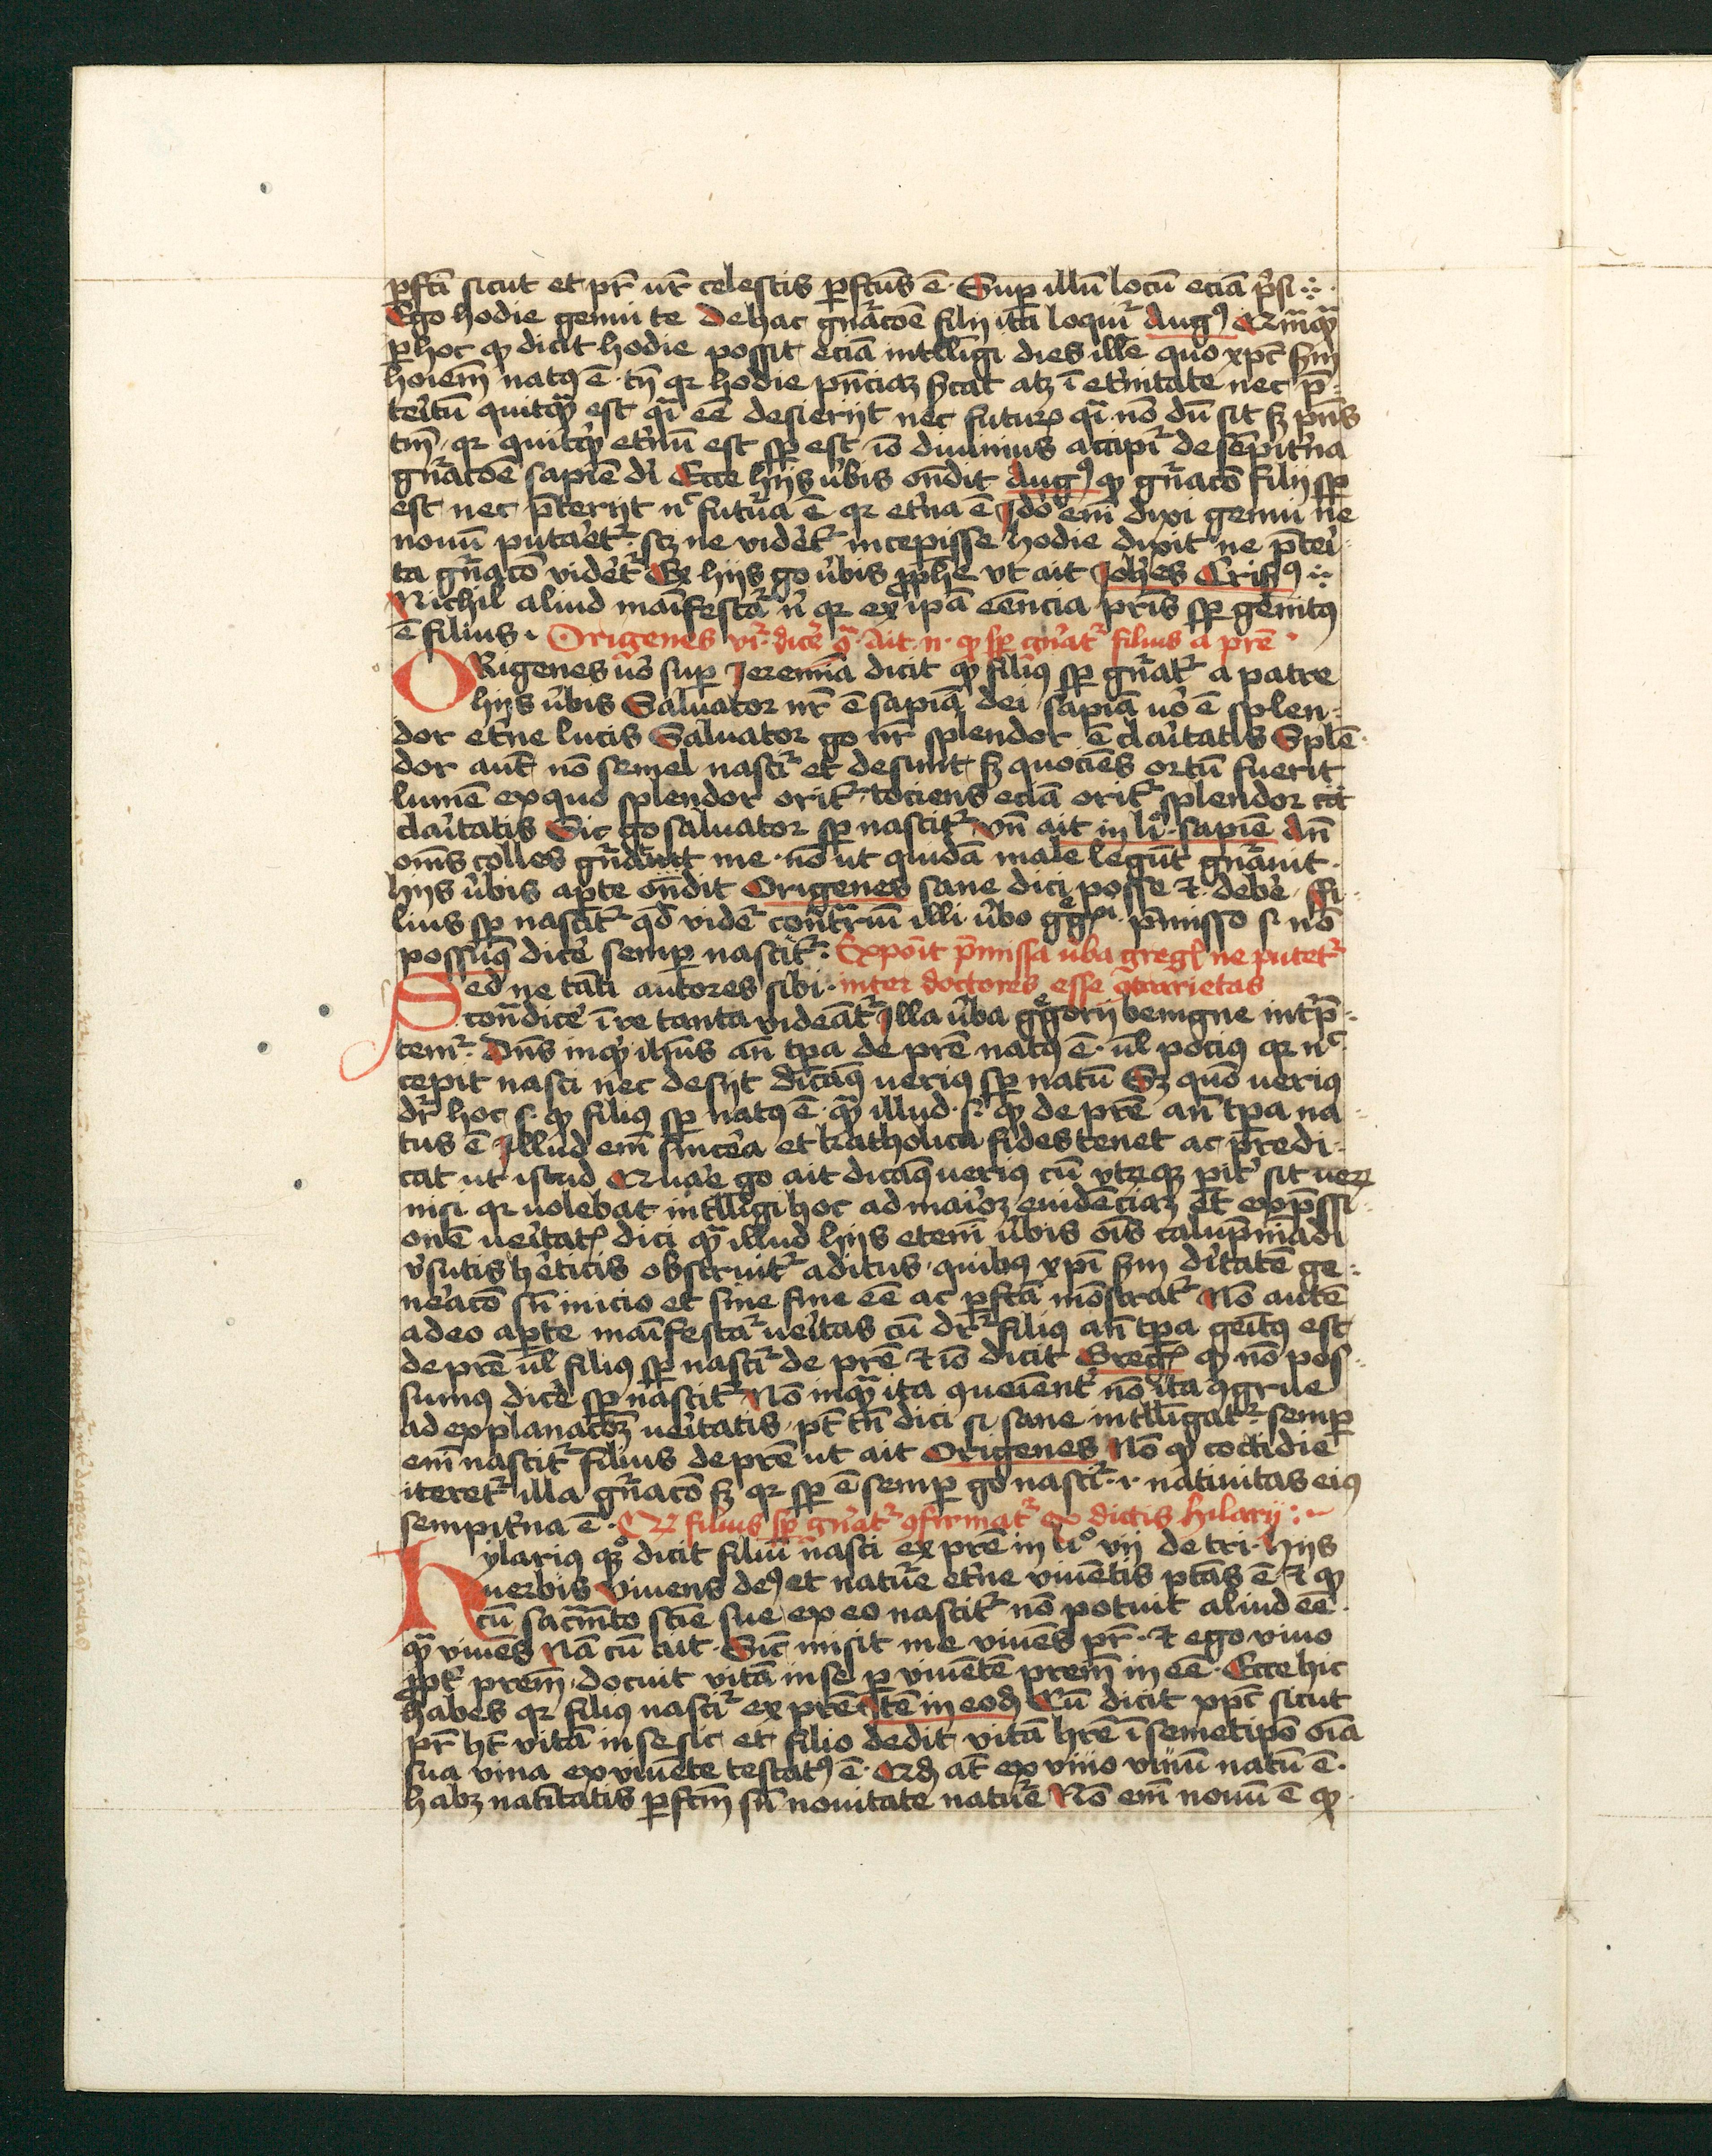 pfcti sicut et pr̄ vr̄ celestis pfctus ē. Sup illū locū eciā psi
Ego hodie genui te De hac gnracoē filij ita loquir Augꝰ Qmqͣ
p hoc qꝫ dicit hodie possit eciā intlligi dies ille quo xpc scdm
hoiem natꝰ ē. tn̄ qr hodie pn̄ciaz sīcat atqꝫ ī etnitate nec p̄
teitū quitqͣ est qͣi eē desierijt nec futurꝫ qͣi nō dū sit sꝫ pn̄s
tm̄. qr quitqͥd etnū est sp est io diuinius accipiꝛ de sēpitna
gnracōe sapiē di Ecce hijs v̄bis on̄dit Augꝰ qꝫ gnraco filij sp
est nec pterijt nͨ futura ē qr etna ē Jdo em̄ dixi genui ne
nouū putaetꝛ. scꝫ ne videtꝛ incepisse hodie dixit ne ptei
ta gnraco videtꝛ Ex hijs go v̄bis pphe vt ait Johes Crisꝰ
Nichil aliud māifestaꝛ n̄ qr ex ipa eēncia pr̄is sp genitꝰ
ē filius. Origenes vꝛ dice ꝯͣ. Ait. n. qꝫ sp gn̄atꝛ filius a prē
ORigenes vo sup Jeremiā dicit qꝫ filiꝰ sp gnratꝛ a patre
hijs v̄bis Saluator nr̄ ē sapiā dei sapiā vo ē splen
dor etne lucis Saluator go nr̄ splendor ē claitatis Splē
dor aut̄ nō semel nasciꝛ et desinit sꝫ quociēs ortū fuerit
lumē ex quo splendor oritꝛ tociens eciā oritꝛ splendor
claitatis Sic go saluator sp nascitꝛ Vn̄ ait in liͦ. sapiē An̄
om̄s colles gn̄ me. nō ut quidā male legūt gnrauit.
hijs v̄bis apte on̄dit Origenes sane dici posse ⁊ debe. fi
lius sp nascitꝛ qd videꝛ contrariū illi v̄bo gͤgͦrij. pmisso s. nō
possumꝰ dice semper nascitꝛ. Exponit pmissa v̄ba gregͦ ne putetꝛ
Sed ne tāti autores sibi. inter doctores esse ꝯtrarietas
cont̄dice ī re tanta videātꝛ Jlla v̄ba gͤgorij benigne intp̄
temꝛ. Dn̄s inqͥt ihūs an̄ tpa de prē natꝰ ē. vl pociꝰ qr nͨ
cepit nasci nec desijt dicamꝰ veriꝰ sp natū Sꝫ quō veriꝰ
dr̄ hoc s. qꝫ filius sp natꝰ ē. qͣ illud. s. qꝫ de prē an̄ tpa na
tus ē Jllud em̄ sincera et katholica fides tenet ac predi
cat ut istud Quare go ait dicamꝰ veriꝰ cū vtrqꝫ pitͬ sit verꝝ
nisi qr volebat intlligi hoc ad maioꝫ euidēciaꝫ et expssi
onē veitatꝭ dici qͣ illud hijs etem̄ v̄bis om̄s calupniādi
v̄sutis heticis obstruitꝛ aditus. quibꝰ xpī scdm ditatē ge
neacō sn̄ inicio et sine fine eē ac pfctā mōstratꝛ Nō autē
adeo apte māifestaꝛ veitas cū drꝛ filiꝰ an̄ tpa genitꝰ est
de prē vl filiꝰ sp nasciꝛ de prē ⁊ io dicit Gregͦ qꝫ nō pos
sumus dice sp nascitꝛ Nō inqͣ ita queniēnt nō ita ꝯgrue
ad explanacōꝫ veitatis. pt tn̄ dici si sane intlligatꝛ. semp
em̄ nascitꝛ filius de prē ut ait Origenes Nō qꝫ cottidie
iteretꝛ illa gnracō sꝫ qr sp ē semp go nasciꝛ. i. natiuitas eiꝰ
sempitna ē. Qꝫ filius sp gn̄atꝛ ꝯfirmatꝛ ex dictis hilarij
hylariꝰ qꝫ dicit filiū nasci ex prē in liͦ vij de tri. hijs
verbis Viuens deꝰ et nature etne viuētis ptas ē. ⁊ qꝫ
cū sacmto scie sue ex eo nascitꝛ nō potuit aliud eē.
qͣ viuēs Nā cū ait. Sic misit me viuēs pr̄. ⁊ ego viuo
ppt prem̄. docuit vitā in se p viuētē prem̄ in eē. Ecce hic
habes qr filiꝰ nasciꝛ ex prē Jtē in eoꝺ Cū dicit xpc sicut
pr̄ ht̄ vitā in se sic et filio dedit vitā hrē ī semetipō oīa
sua viua ex viuente testatꝰ ē. Qꝺ at̄ ex viuo viuū natū ē.
habꝫ natitatis pfctm sn̄ nouitate nature Nō em̄ nouū ē qꝫ